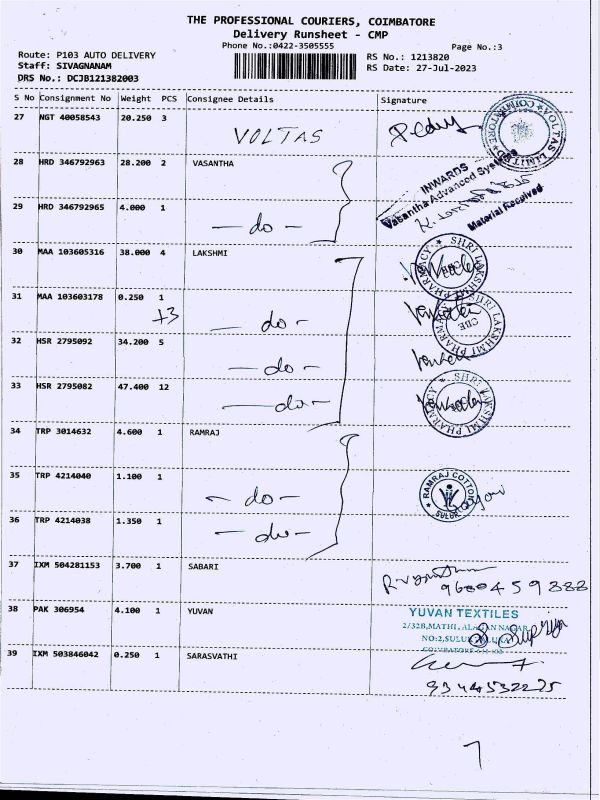 THE PROFESSIONAL COURIERS, COIMBATORE
Delivery Runsheet - CMP
Phone No.:0422-3505555 Page No.:3
Route: P103 AUTO DELIVERY RS No.: 1213820
Staff: SIVAGNANAM RS Date: 27-Jul-2023
DRS No.: DCJB121382003
S No Consignment No Weight PCS Consignee Details Signature
27 NGT 40058543 20.250 3 VOLTAS
VOLTAS LIMITED COIMBATORE
28 HRD 346792963 28.200 2 VASANTHA
INWARDS
Vasantha Advanced Systems
Material Received
29 HRD 346792965 4.000 1 -do-
30 MAA 103605316 38.000 4 LAKSHMI
SHRI LAKSHMI PHARMACY CBE
31 MAA 103603178 0.250 1
+3 -do-
SHRI LAKSHMI PHARMACY CBE
32 HSR 2795092 34.200 5 -do-
33 HSR 2795082 47.400 12 -do-
SHRI LAKSHMI PHARMACY
34 TRP 3014632 4.600 1 RAMRAJ
35 TRP 4214040 1.100 1 -do-
RAMRAJ COTTON SULUR
36 TRP 4214038 1.350 1 -do-
37 IXM 504281153 3.700 1 SABARI
9600459888
38 PAK 306954 4.100 1 YUVAN
YUVAN TEXTILES
2/32B, MATHI, ALAGAN NAGAR
NO:2, SULUR
S. Supriya
39 IXM 503846042 0.250 1 SARASVATHI
9344532275
7